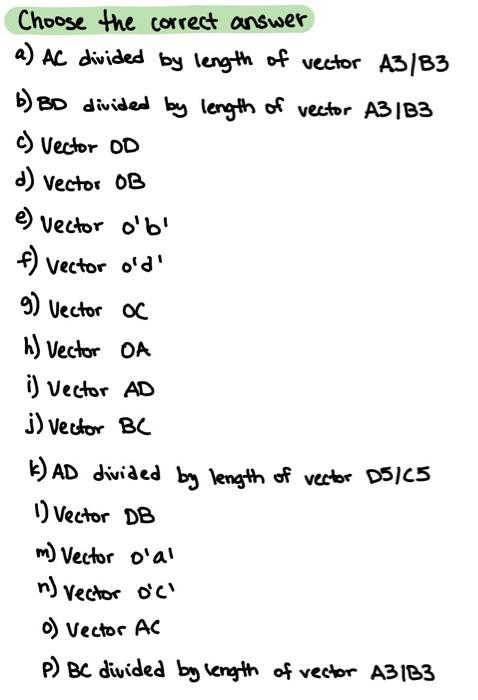 Choose the correct answer
a) AC divided by length of vector A3/B3
b) BD divided by length of vector A3/B3
c) Vector OD
d) Vector OB
e) Vector o'b'
f) Vector o'd'
g) Vector OC
h) Vector OA
i) Vector AD
j) Vector BC
k) AD divided by length of vector D5/C5
l) Vector DB
m) Vector o'a'
n) Vector o'c'
o) Vector AC
p) BC divided by length of vector A3/B3